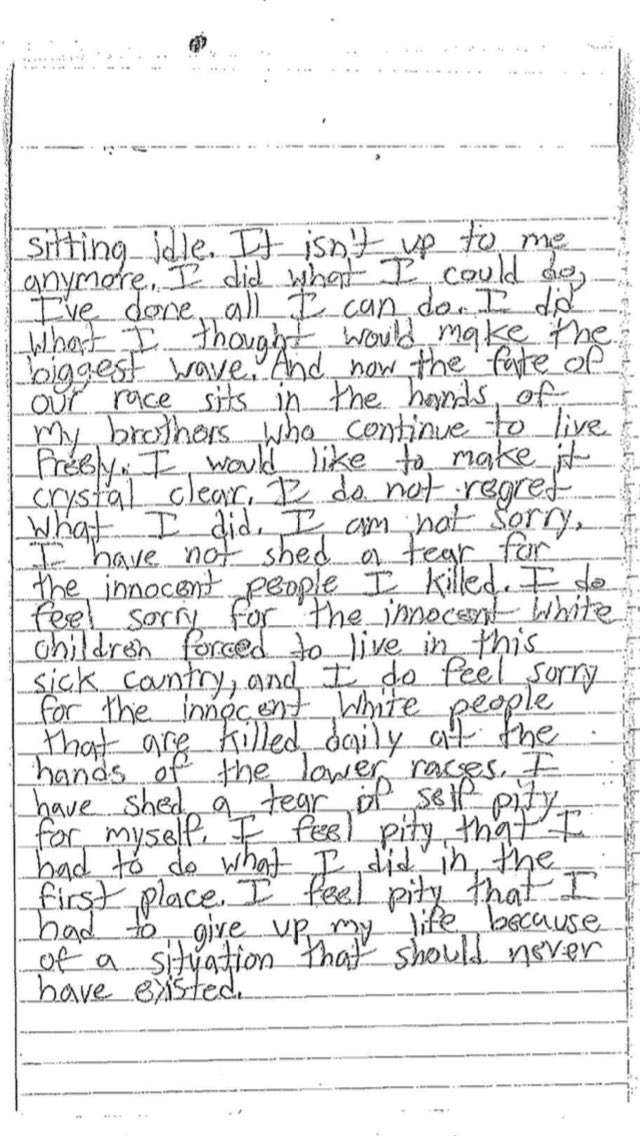 sitting idle. It isn't up to me
anymore. I did what I could do,
I've done all I can do. I did
what I thought would make the
biggest wave. And now the fate of
our race sits in the hands of
my brothers who continue to live
freely. I would like to make it
crystal clear, I do not regret
what I did. I am not sorry.
I have not shed a tear for
the innocent people I killed. I do
feel sorry for the innocent white
children forced to live in this
sick country, and I do feel sorry
for the innocent white people
that are killed daily at the
hands of the lower racses. I
have shed a tear of self pity
for myself. I feel pity that I
had to do what I did in the
first place. I feel pity that I
had to give up my life because
of a situation that should never
have existed.